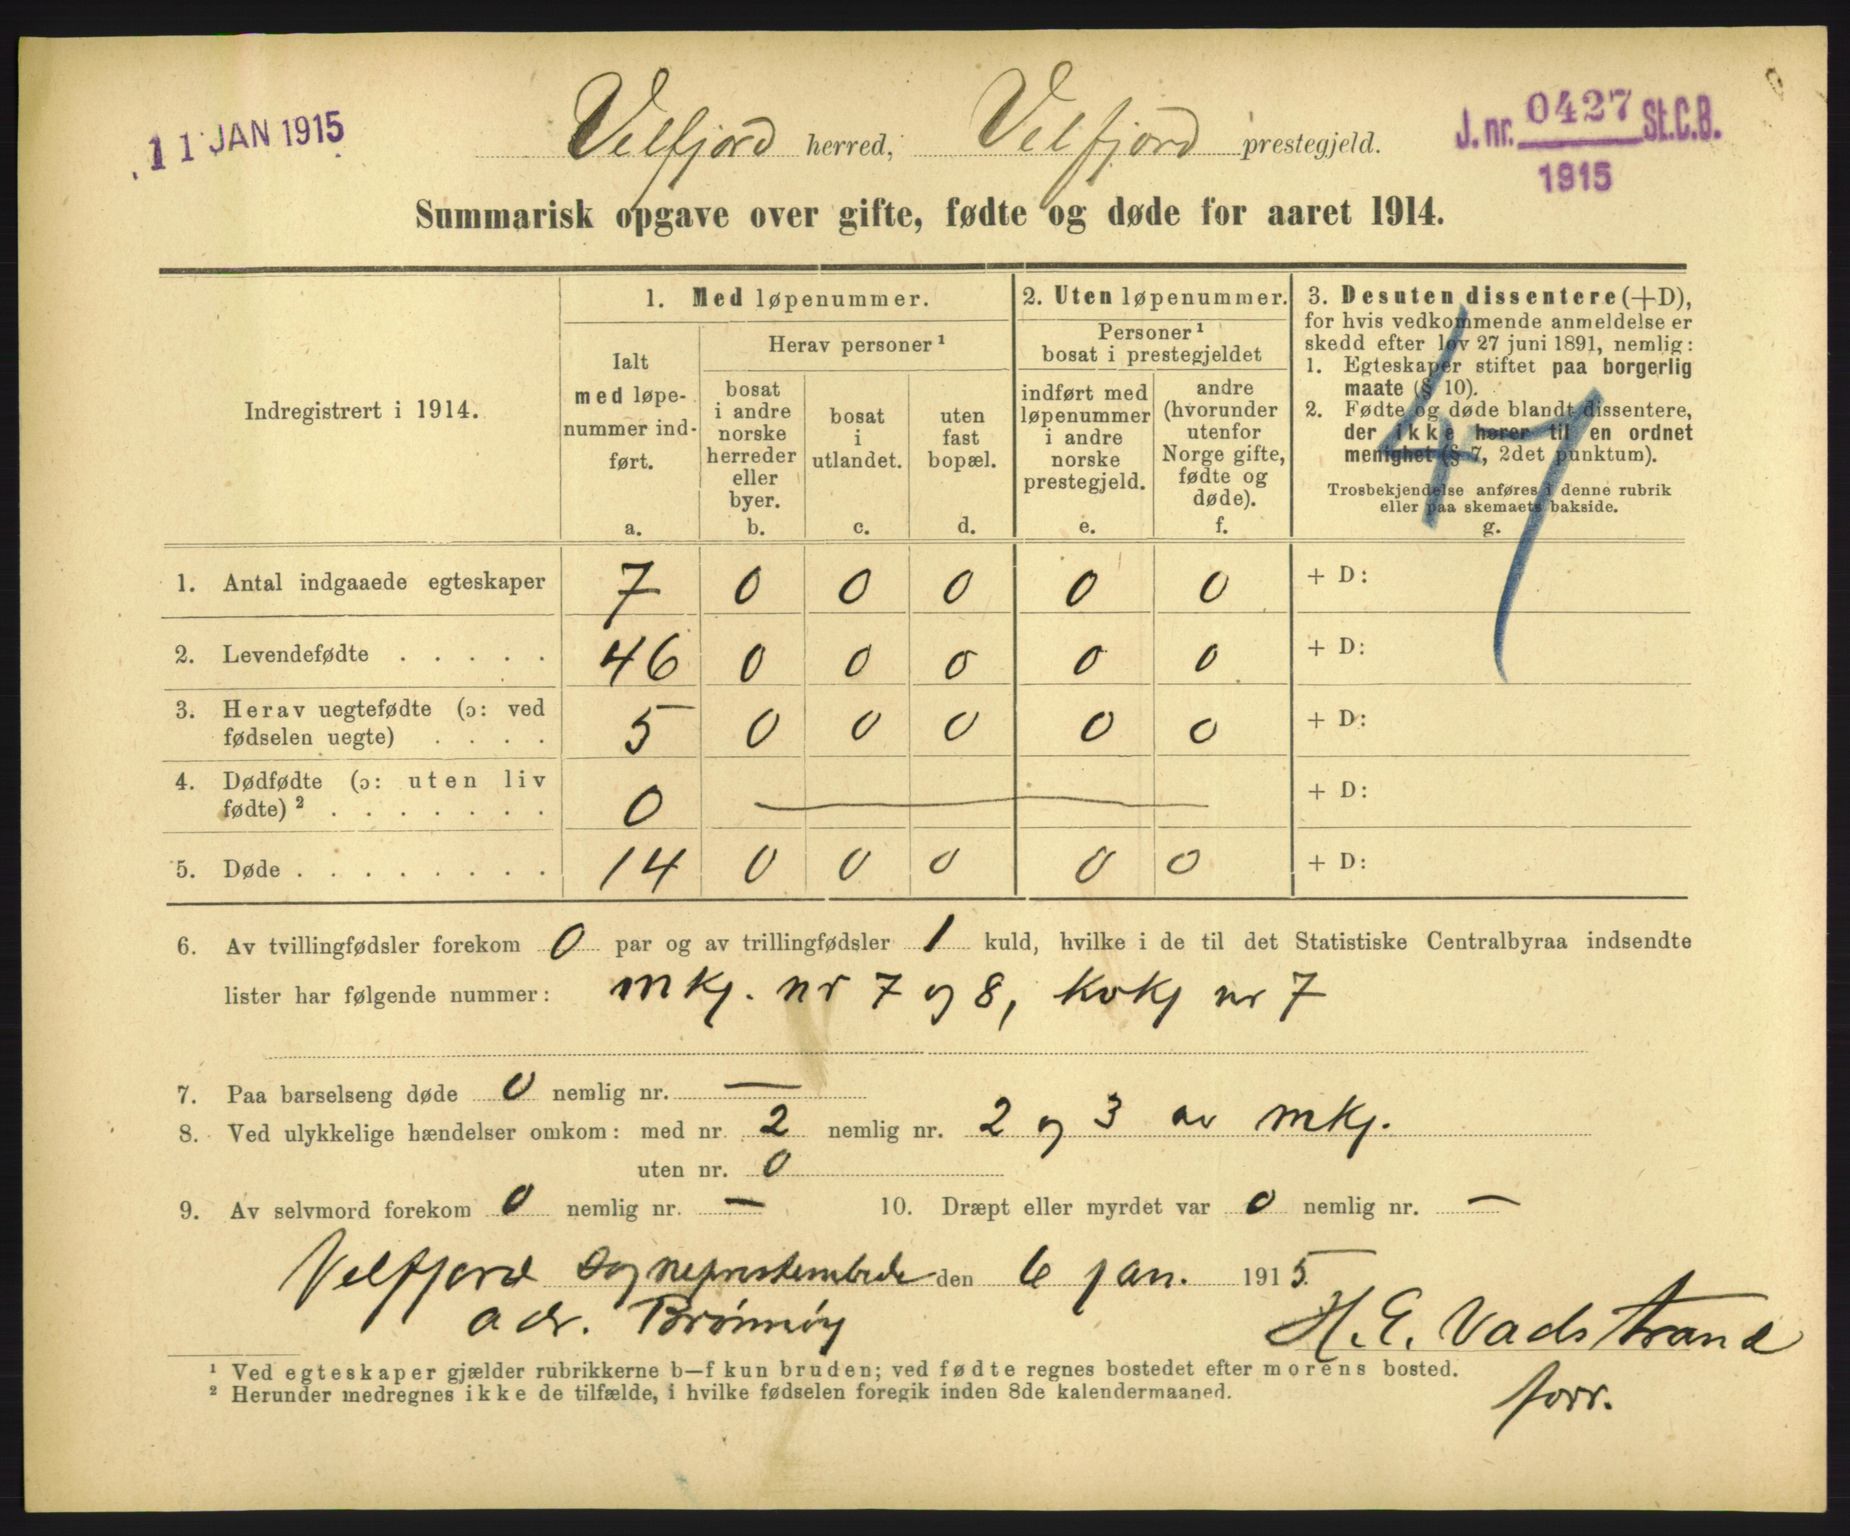 11 JAN 1915
Velfjord herred, Velfjord prestegjeld.
J. nr. 0427 St. C. B.
1915
Summarisk opgave over gifte, fødte og døde for aaret 1914.
Indregistrert i 1914.
1. Med løpenummer.
Ialt
med løpe-
nummer ind-
ført.
a.
Herav personer¹
bosat
i andre
norske
herreder
eller
byer.
b.
bosat
i
utlandet.
c.
uten
fast
bopæl.
d.
2. Uten løpenummer.
Personer¹
bosat i prestegjeldet
indført med
løpenummer
i andre
norske
prestegjeld.
e.
andre
(hvorunder
utenfor
Norge gifte,
fødte og
døde).
f.
3. Desuten dissentere (+D),
for hvis vedkommende anmeldelse er
skedd efter lov 27 juni 1891, nemlig:
1. Egteskaper stiftet paa borgerlig
maate (§ 10).
2. Fødte og døde blandt dissentere,
der ikke hører til en ordnet
menighet (§ 7, 2det punktum).
Trosbekjendelse anføres i denne rubrik
eller paa skemaets bakside.
g.
47
1. Antal indgaaede egteskaper 7 0 0 0 0 0 + D:
2. Levendefødte . . . . . 46 0 0 0 0 0 + D:
3. Herav uegtefødte (ɔ: ved
fødselen uegte) . . . . 5 0 0 0 0 0 + D:
4. Dødfødte (ɔ: uten liv
fødte)² . . . . . . . 0 — + D:
5. Døde . . . . . . . . . 14 0 0 0 0 0 + D:
6. Av tvillingfødsler forekom 0 par og av trillingfødsler 1 kuld, hvilke i de til det Statistiske Centralbyraa indsendte
lister har følgende nummer: mkj. nr 7 og 8, kvkj nr 7
7. Paa barselseng døde 0 nemlig nr. —
8. Ved ulykkelige hændelser omkom: med nr. 2 nemlig nr. 2 og 3 av mkj.
uten nr. 0
9. Av selvmord forekom 0 nemlig nr. — 10. Dræpt eller myrdet var 0 nemlig nr. —
Velfjord sogneprestembede den 6 jan. 1915.
adr. Brønnøy
H. E. Vadstrand
forr.
¹ Ved egteskaper gjælder rubrikkerne b—f kun bruden; ved fødte regnes bostedet efter morens bosted.
² Herunder medregnes ikke de tilfælde, i hvilke fødselen foregik inden 8de kalendermaaned.